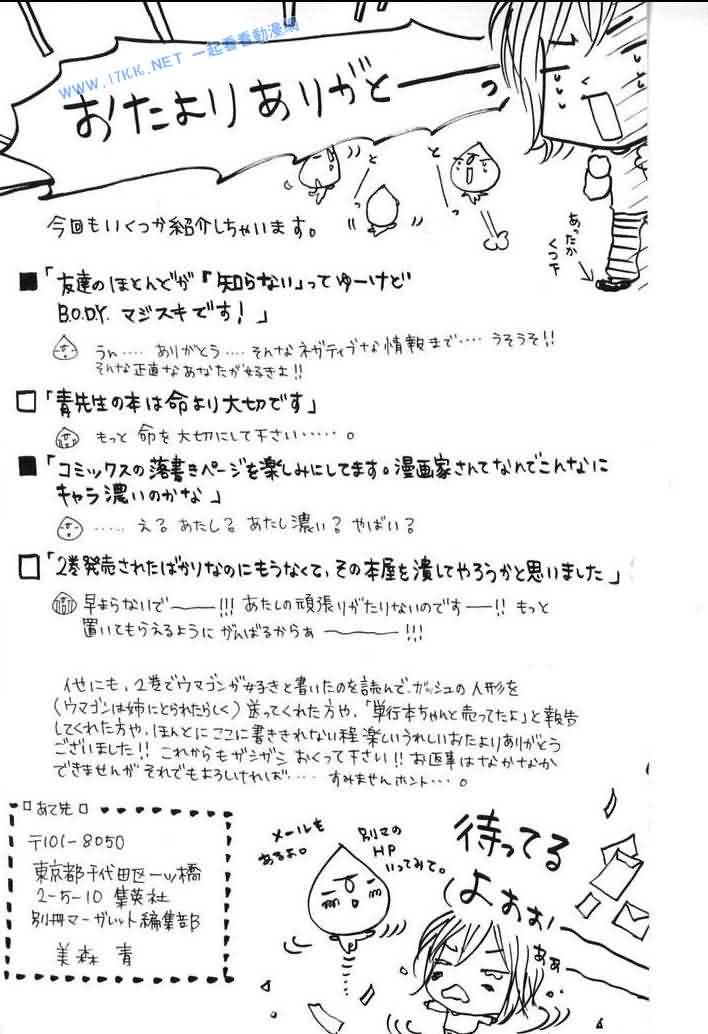 WWW.17KK.NET 一起看看動漫網
おたよりありがとーーっ
とっ
とっ
あったか
くつ下
今回もいくつか紹介しちゃいます。
■「友達のほとんどが『知らない」ってゆーけど
B.O.D.Y. マジスキです!」
うん…‥ ありがとう‥‥ そんなネガティブな情報まで‥‥ うそうそ!!
そんな正直なあなたが好きよ!!
□「青先生の本は命より大切です」
もっと 命を大切にして下さい‥‥‥。
■「コミックスの落書きページを楽しみにしてます。漫画家さんてなんでこんなに
キャラ濃いのかな」
‥‥‥ える あたし? あたし濃い? やばい?
□「2巻発売されたばかりなのにもうなくて、その本屋を潰してやろうかと思いました」
早まらないで〜〜!!! あたしの頑張りがたりないのですー!! もっと
置いてもらえるように がんばるからぁ 〜〜!!!
他にも、2巻でウマゴンが好きと書いたのを読んで、ガッシュの人形を
(ウマゴンは姉にとられたらしく)送ってくれた方や、「単行本ちゃんと売ってたよ」と報告
してくれた方や、ほんとにここに書ききれない程 楽しいうれしいおたよりありがとう
ございました!! これからもガシガシ おくって下さい!! お返事は なかなか
できませんが それでもよろしければ‥‥ すみませんホント‥‥。
□あて先□
〒101-8050
東京都千代田区一ツ橋
2-5-10 集英社
別冊マーガレット編集部
美森 青
メールも
あるよ。
別マの
HP
いってみて。
待ってる
よぉぉぉー
ぁぁー